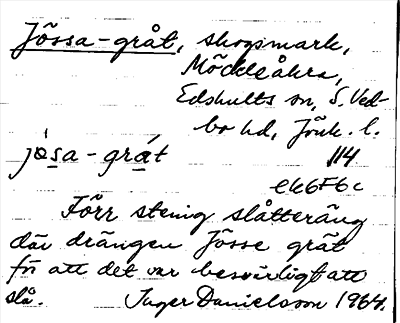 Jössa-gråt, skogsmark,
Möckleåkra,
Edshults sn, S. Ved-
bo hd, Jönk. l.
jòsa-grát 114
ek6F6c
Förr stenig slåtteräng
där drängen Jösse grät
för att det var besvärligt att
slå. Inger Danielsson 1964.